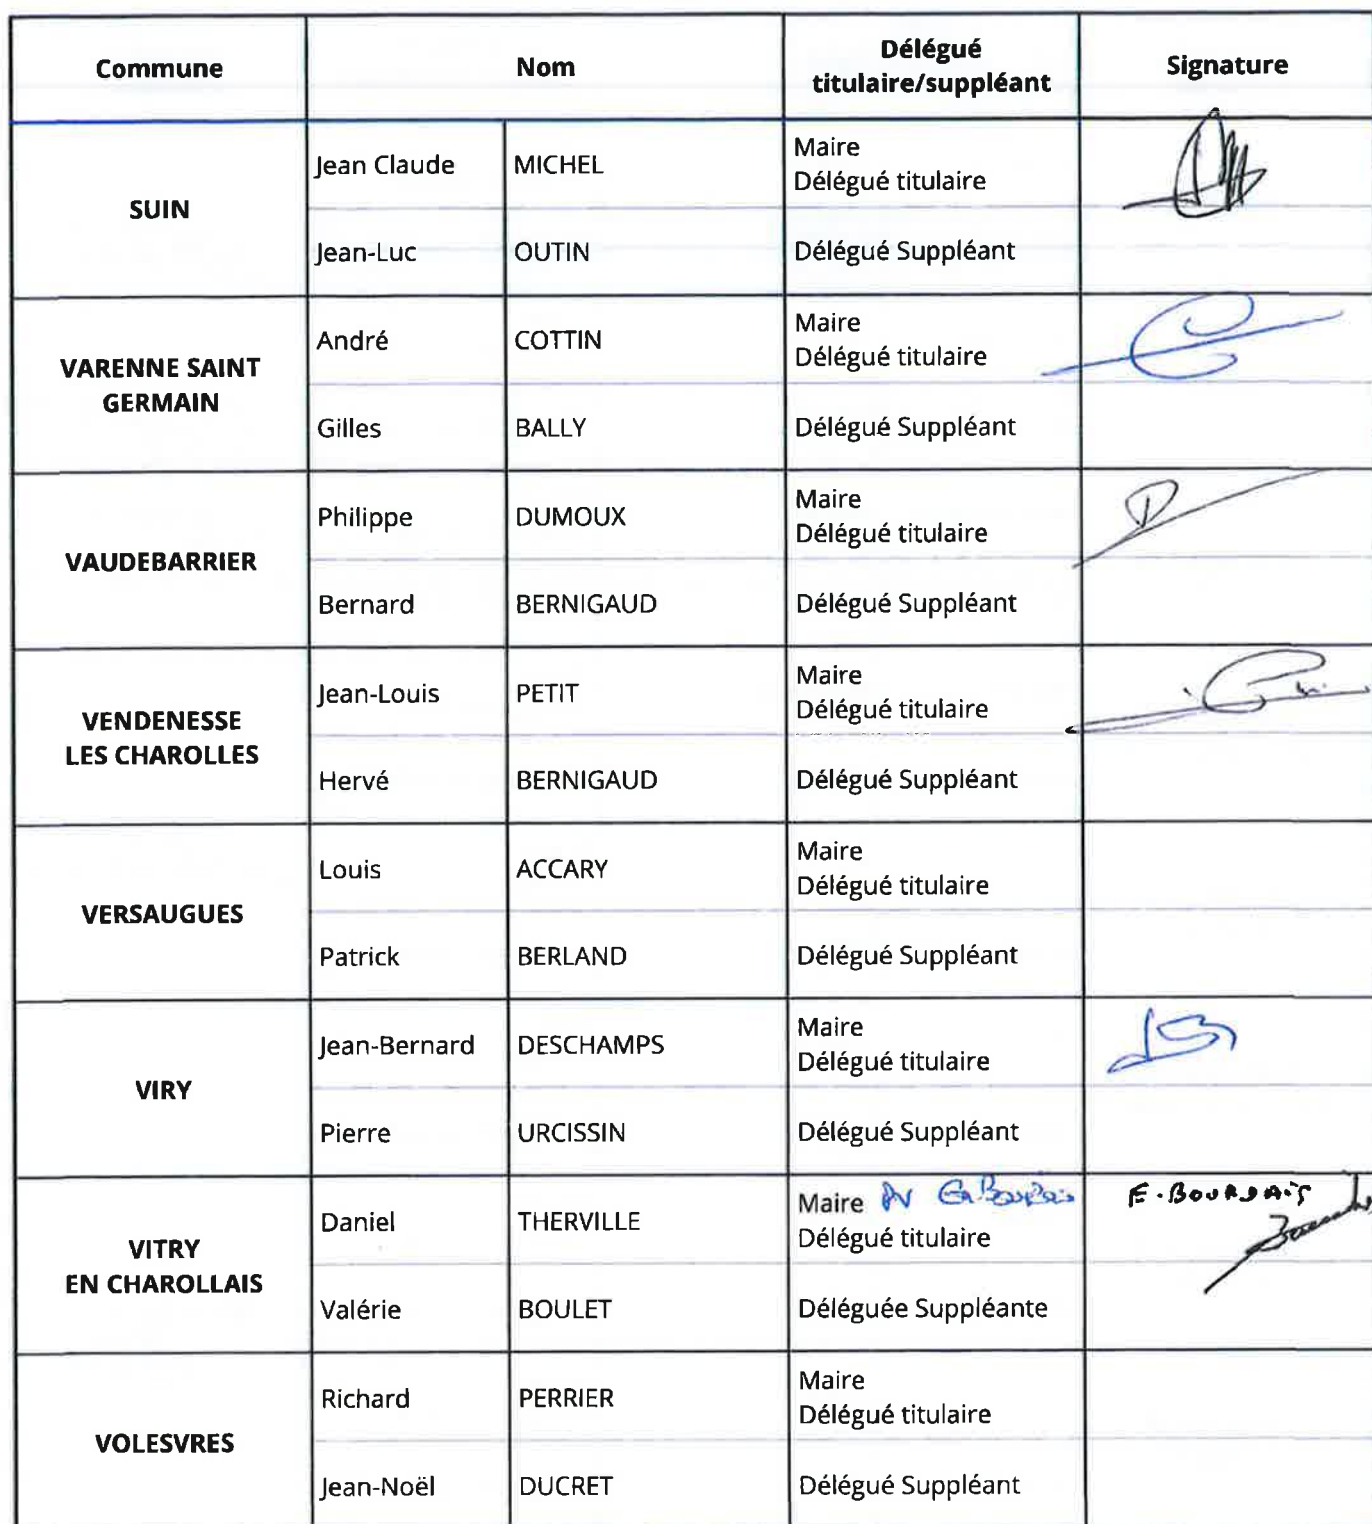 Commune Nom Délégué titulaire/suppléant Signature
SUIN
Jean Claude MICHEL Maire
Délégué titulaire
Jean-Luc OUTIN Délégué Suppléant
VARENNE SAINT
GERMAIN
André COTTIN Maire
Délégué titulaire
Gilles BALLY Délégué Suppléant
VAUDEBARRIER
Philippe DUMOUX Maire
Délégué titulaire
Bernard BERNIGAUD Délégué Suppléant
VENDENESSE
LES CHAROLLES
Jean-Louis PETIT Maire
Délégué titulaire
Hervé BERNIGAUD Délégué Suppléant
VERSAUGUES
Louis ACCARY Maire
Délégué titulaire
Patrick BERLAND Délégué Suppléant
VIRY
Jean-Bernard DESCHAMPS Maire
Délégué titulaire
Pierre URCISSIN Délégué Suppléant
VITRY
EN CHAROLLAIS
Daniel THERVILLE Maire E. BOURDAIS
Délégué titulaire
Valérie BOULET Déléguée Suppléante
VOLESVRES
Richard PERRIER Maire
Délégué titulaire
Jean-Noël DUCRET Délégué Suppléant